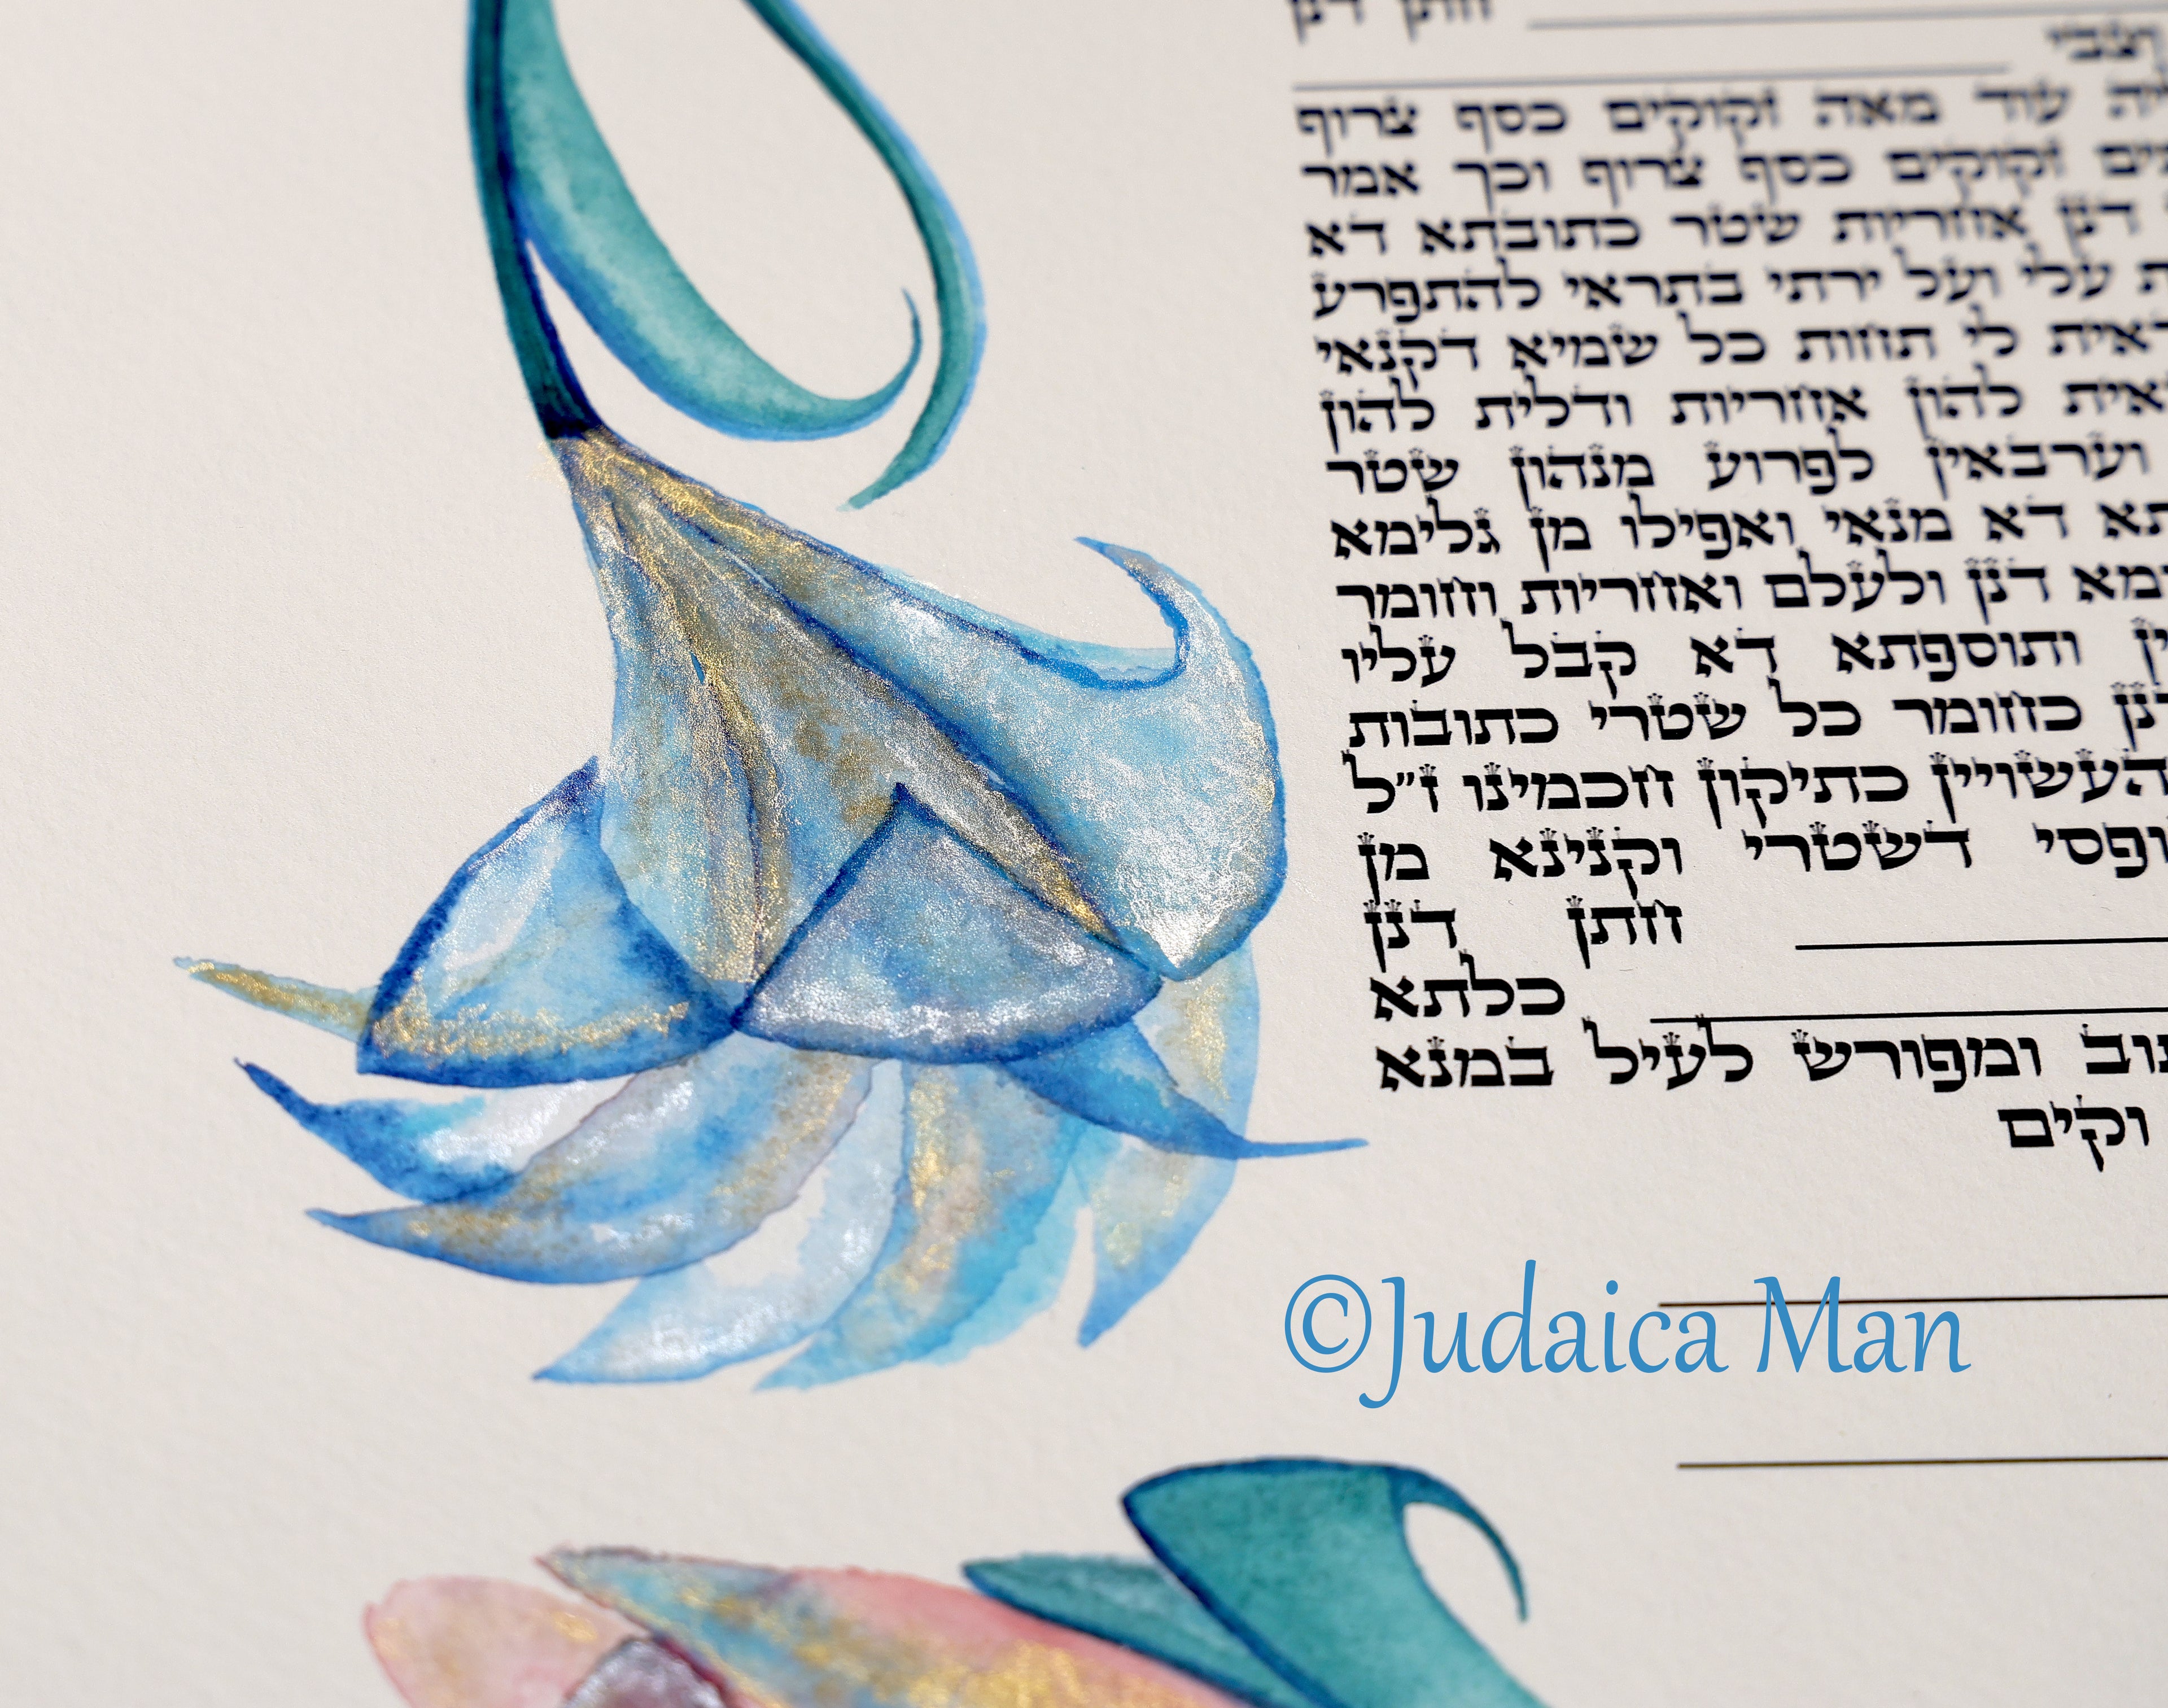 חתן דנן
יה עוד מאה זקוקים כסף צרוף
זקוקים כסף צרוף וכך אמר
דנן אחריות שטר כתובתא דא
עלי ועל ירתי בתראי להתפרע
ראית לי תחות כל שמיא דקנאי
אית להון אחריות ודלית להון
וערבאין לפרוע מנהון שטר
תא דא מנאי ואפילו מן גלימא
ומא דנן ולעלם ואחריות וחומר
ותוספתא דא קבל עליו
דנן כחומר כל שטרי כתובות
העשויין כתיקון חכמינו ז״ל
ופסי דשטרי וקנינא מן
חתן דנן
כלתא
תוב ומפורש לעיל במנא
וקים
©Judaica Man